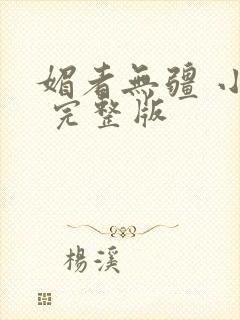 媚者無疆 小
完整版
楊溪